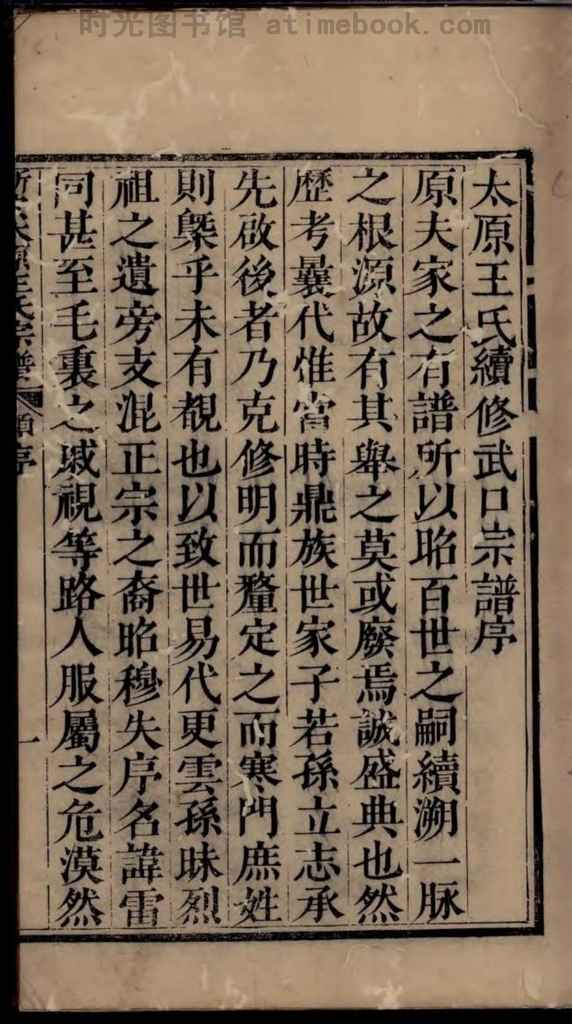 时光图书馆 atimebook.com
太原王氏續修武口宗譜序
原夫家之有譜所以昭百世之嗣續溯一脉
之根源故有其舉之莫或廢焉誠盛典也然
歷考曩代惟當時鼎族世家子若孫立志承
先啟後者乃克修明而釐定之而寒門庶姓
則槩乎未有覩也以致世易代更雲孫昧烈
祖之遺旁支混正宗之裔昭穆失序名諱雷
同甚至毛裏之戚視等路人服屬之危漠然
太原王氏宗譜 序 一